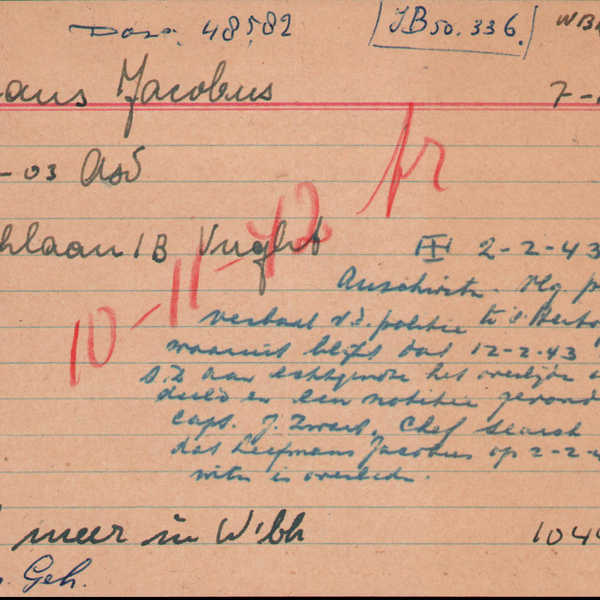 Doss. 48582 JB 50.336. WB
ans Jacobus 7-
-03 Asd
hlaan 1B Vught
fr
10-11-42
2-2-43
Auschwitz. Vlg p
verbaal v.d. politie te s. Hertog
waaruit blijkt dat 12-2-43
S.D aan echtgenote het overlijden
deeld en een notitie
Capt. J. Zwart, Chef Search
dat Leefmans Jacobus op 2-2-4
witz is overleden.
meer in W'bk 104
Geh.